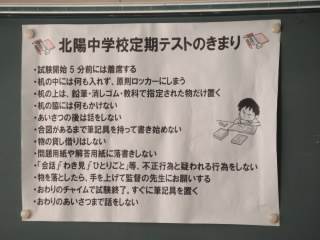 北陽中学校定期テストのきまり
・試験開始5分前には着席する
・机の中には何も入れず、原則ロッカーにしまう
・机の上は、鉛筆・消しゴム・教科で指定された物だけ置く
・机の脇には何もかけない
・あいさつの後は話をしない
・合図があるまで筆記具を持って書き始めない
・物の貸し借りはしない
・問題用紙や解答用紙に落書きしない
・「会話」「わき見」「ひとりごと」等、不正行為と疑われる行為をしない
・物を落としたら、手を上げて監督の先生にお願いする
・おわりのチャイムで試験終了。すぐに筆記具を置く
・おわりのあいさつまで話をしない